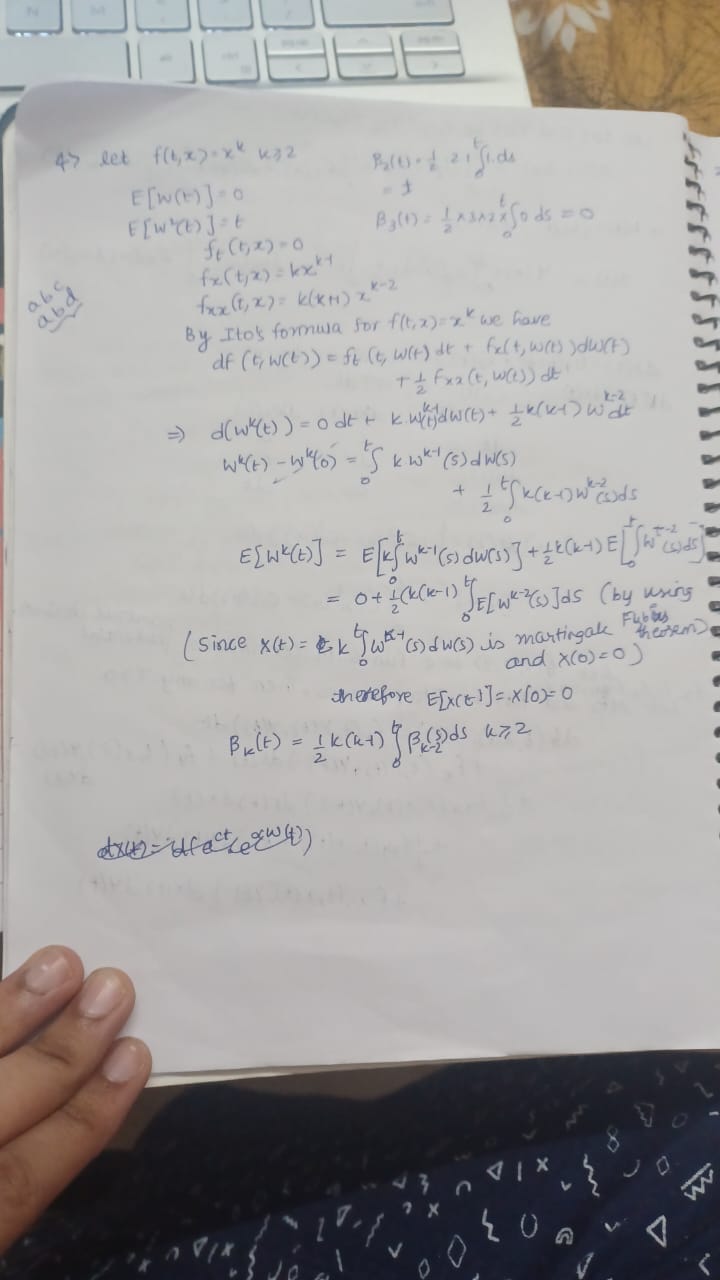 4> let f(t,x) = x^k k≥2
β₂(t) = 1/2 2 1 ∫₀ᵗ 1.ds
= t
E[W(t)] = 0
E[W²(t)] = t
β₃(t) = 1/2 × 3 × 2 × ∫₀ᵗ 0 ds = 0
f_t(t,x) = 0
f_x(t,x) = kx^{k-1}
f_xx(t,x) = k(k-1) x^{k-2}
abc
abd
By Ito's formula for f(t,x) = x^k we have
df(t,W(t)) = f_t(t,W(t) dt + f_x(t,W(t))dW(t)
+ 1/2 f_xx(t,W(t)) dt
⇒ d(W^k(t)) = 0 dt + k.W^{k-1}(t)dW(t) + 1/2 k(k-1) W^{k-2} dt
W^k(t) - W^k(0) = ∫₀ᵗ k W^{k-1}(s) dW(s)
+ 1/2 ∫₀ᵗ k(k-1) W^{k-2}(s)ds
E[W^k(t)] = E[k∫₀ᵗ W^{k-1}(s) dW(s)] + 1/2 k(k-1) E[∫₀ᵗ W^{k-2}(s)ds]
= 0 + 1/2 (k(k-1) ∫₀ᵗ E[W^{k-2}(s)]ds (by using Fubini's theorem)
(since X(t) = k ∫₀ᵗ W^{k-1}(s) dW(s) is martingale
and X(0) = 0)
therefore E[X(t)] = X(0) = 0
β_k(t) = 1/2 k(k-1) ∫₀ᵗ β_{k-2}(s)ds k≥2